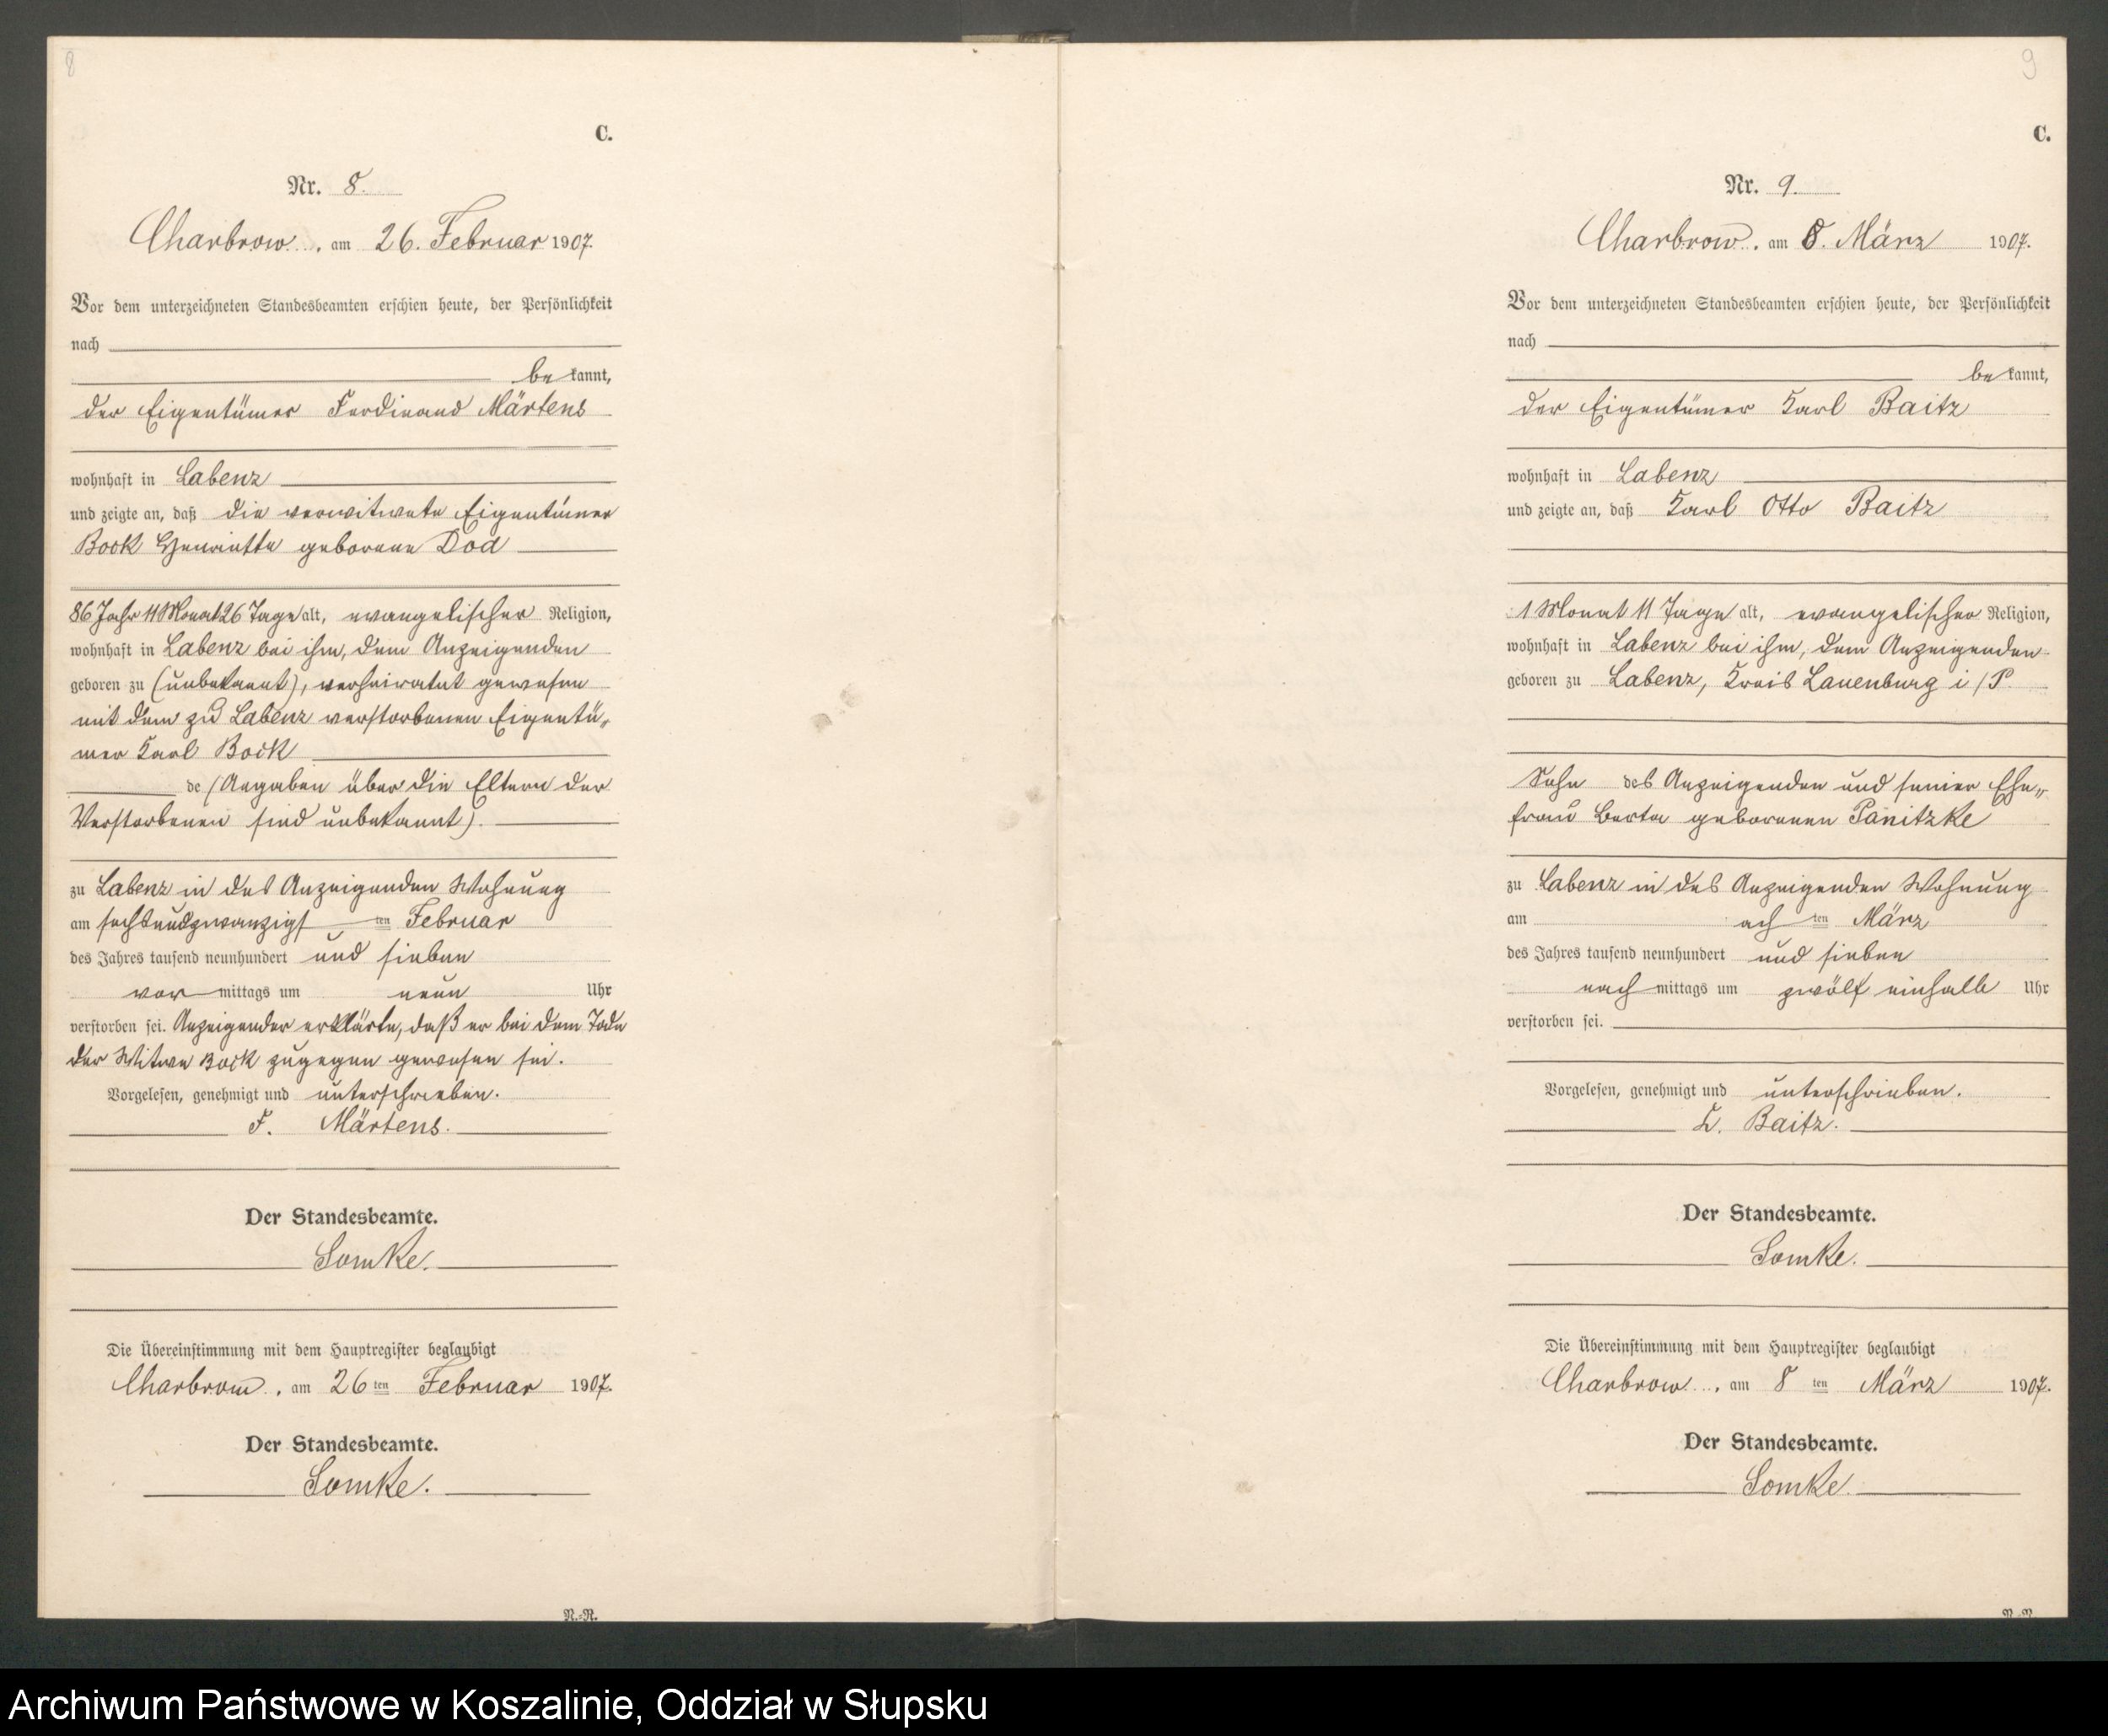 8
C.
Nr. 8.
Charbrow, am 26. Februar 1907.
Vor dem unterzeichneten Standesbeamten erschien heute, der Persönlichkeit
nach
bekannt,
der Eigentümer Ferdinand Märtens
wohnhaft in Labenz
und zeigte an, daß die verwitwete Eigentümer
Bock Henriette geborene Dod
86 Jahr 11 Monat 26 Tage alt, evangelischer Religion,
wohnhaft in Labenz bei ihm, dem Anzeigenden
geboren zu (unbekannt), verheiratet gewesen
mit dem zu Labenz verstorbenen Eigentü„
mer Karl Bock
de (Angaben über die Eltern der
Verstorbenen sind unbekannt).
zu Labenz in des Anzeigenden Wohnung
am sechsundzwanzigsten Februar
des Jahres tausend neunhundert und sieben
vormittags um neun Uhr
verstorben sei. Anzeigender erklärte, daß er bei dem Tode
der Witwe Bock zugegen gewesen sei.
Vorgelesen, genehmigt und unterschrieben.
F. Märtens.
Der Standesbeamte.
Somke.
Die Übereinstimmung mit dem Hauptregister beglaubigt
Charbrow, am 26ten Februar 1907.
Der Standesbeamte.
Somke.
N.-N.
9
C.
Nr. 9.
Charbrow, am 8. März 1907.
Vor dem unterzeichneten Standesbeamten erschien heute, der Persönlichkeit
nach
bekannt,
der Eigentümer Karl Baitz
wohnhaft in Labenz
und zeigte an, daß Karl Otto Baitz
1 Monat 11 Tage alt, evangelischer Religion,
wohnhaft in Labenz bei ihm, dem Anzeigenden
geboren zu Labenz, Kreis Lauenburg i/P.
Sohn des Anzeigenden und seiner Ehe„
frau Berta geborenen Panitzke
zu Labenz in des Anzeigenden Wohnung
am achten März
des Jahres tausend neunhundert und sieben
nachmittags um zwölf einhalb Uhr
verstorben sei.
Vorgelesen, genehmigt und unterschrieben.
K. Baitz.
Der Standesbeamte.
Somke.
Die Übereinstimmung mit dem Hauptregister beglaubigt
Charbrow, am 8ten März 1907.
Der Standesbeamte.
Somke.
N.-N.
Archiwum Państwowe w Koszalinie, Oddział w Słupsku